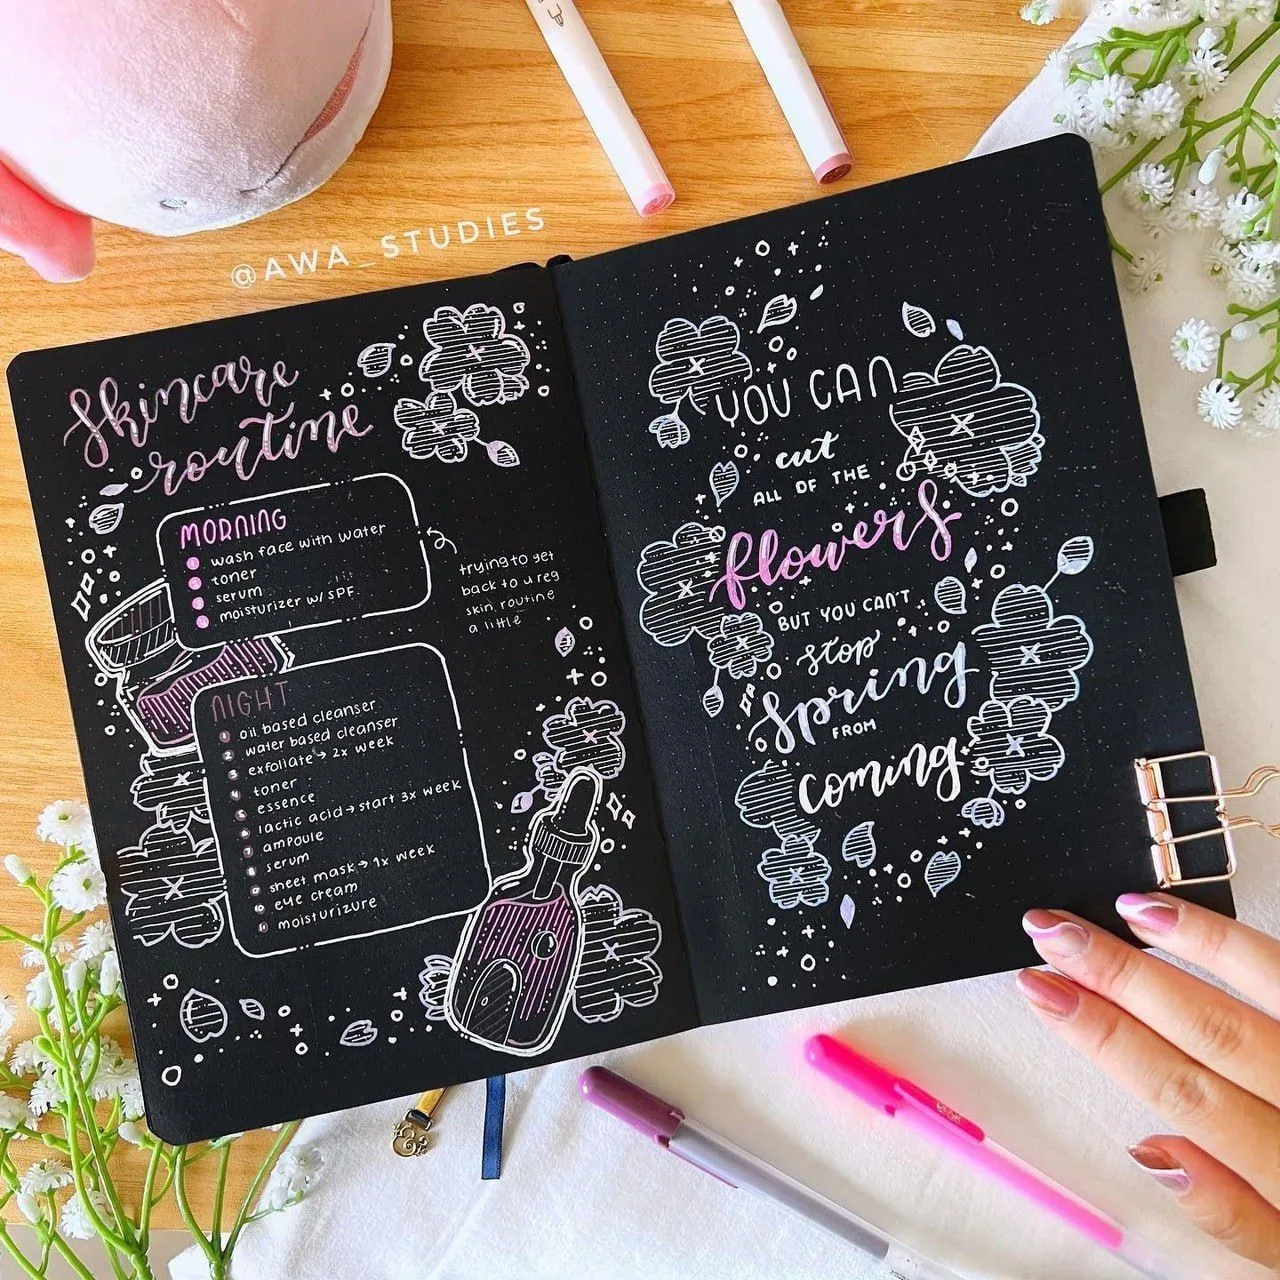 @AWA_STUDIES
Skincare
routine
MORNING
1 wash face with water
2 toner
3 serum
4 moisturizer w/ SPF
trying to get
back to u reg
skin routine
a little
NIGHT
1 oil based cleanser
2 water based cleanser
3 exfoliate → 2x week
4 toner
5 essence
6 lactic acid → start 3x week
7 ampoule
8 serum
9 sheet mask → 1x week
10 eye cream
11 moisturizure
YOU CAN
cut
ALL OF THE
flowers
BUT YOU CAN'T
stop
Spring
FROM
coming